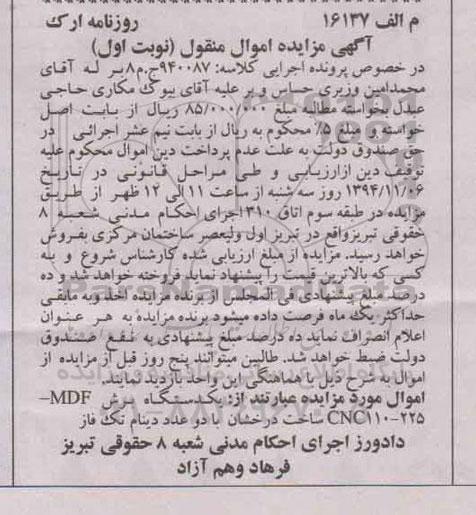 م الف ۱۶۱۳۷ روزنامه ارک
آگهی مزایده اموال منقول (نوبت اول)
در خصوص پرونده اجرایی کلاسه: ۹۴۰۰۸۷ج.م۸بر له آقای
محمدامین وزیری حساس و بر علیه آقای بیوک مکاری حاجی
عبدل بخواسته مطالبه مبلغ ۸۵/۰۰۰/۰۰۰ ریال از بابت اصل
خواسته و مبلغ ۵٪ محکوم به ریال از بابت نیم عشر اجرائی در
حق صندوق دولت به علت عدم پرداخت دین اموال محکوم علیه
توقیف دین ازارزیابی و طی مراحل قانونی در تاریخ
۱۳۹۴/۱۱/۰۶ روز سه شنبه از ساعت ۱۱ الی ۱۲ ظهر از طریق
مزایده در طبقه سوم اتاق ۳۱۰ اجرای احکام مدنی شعبه ۸
حقوقی تبریزواقع در تبریز اول ولیعصر ساختمان مرکزی بفروش
خواهد رسید. مزایده از مبلغ ارزیابی شده کارشناس شروع و به
کسی که بالاترین قیمت را پیشنهاد نماید فروخته خواهد شد و ده
درصد مبلغ پیشنهادی فی المجلس از برنده مزایده اخذ وبه مابقی
حداکثر یک ماه فرصت داده میشود برنده مزایده به هر عنوان
اعلام انصراف نماید ده درصد مبلغ پیشنهادی به نفع صندوق
دولت ضبط خواهد شد. طالبین میتوانند پنج روز قبل از مزایده از
اموال به شرح ذیل با هماهنگی این واحد بازدید نمایند.
اموال مورد مزایده عبارتند از: یکدستگاه برش MDF-
CNC۱۱۰-۲۲۵ ساخت درخشان با دو عدد دینام تک فاز
دادورز اجرای احکام مدنی شعبه ۸ حقوقی تبریز
فرهاد وهم آزاد
ParsNamadData
۰۲۱-۸۸۳۴۹۶۷۰